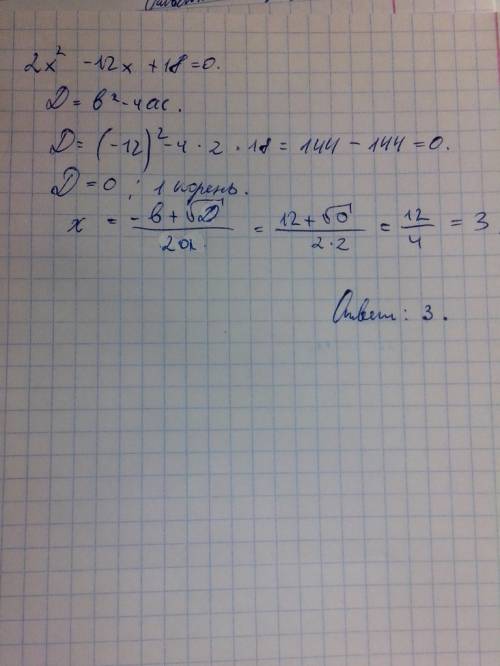 2x² - 12x + 18 = 0.
D = b² - 4ac.
D = (-12)² - 4 · 2 · 18 = 144 - 144 = 0.
D = 0 ; 1 корень.
x = (-b + √D)/2a = (12 + √0)/(2·2) = 12/4 = 3
Ответ: 3.